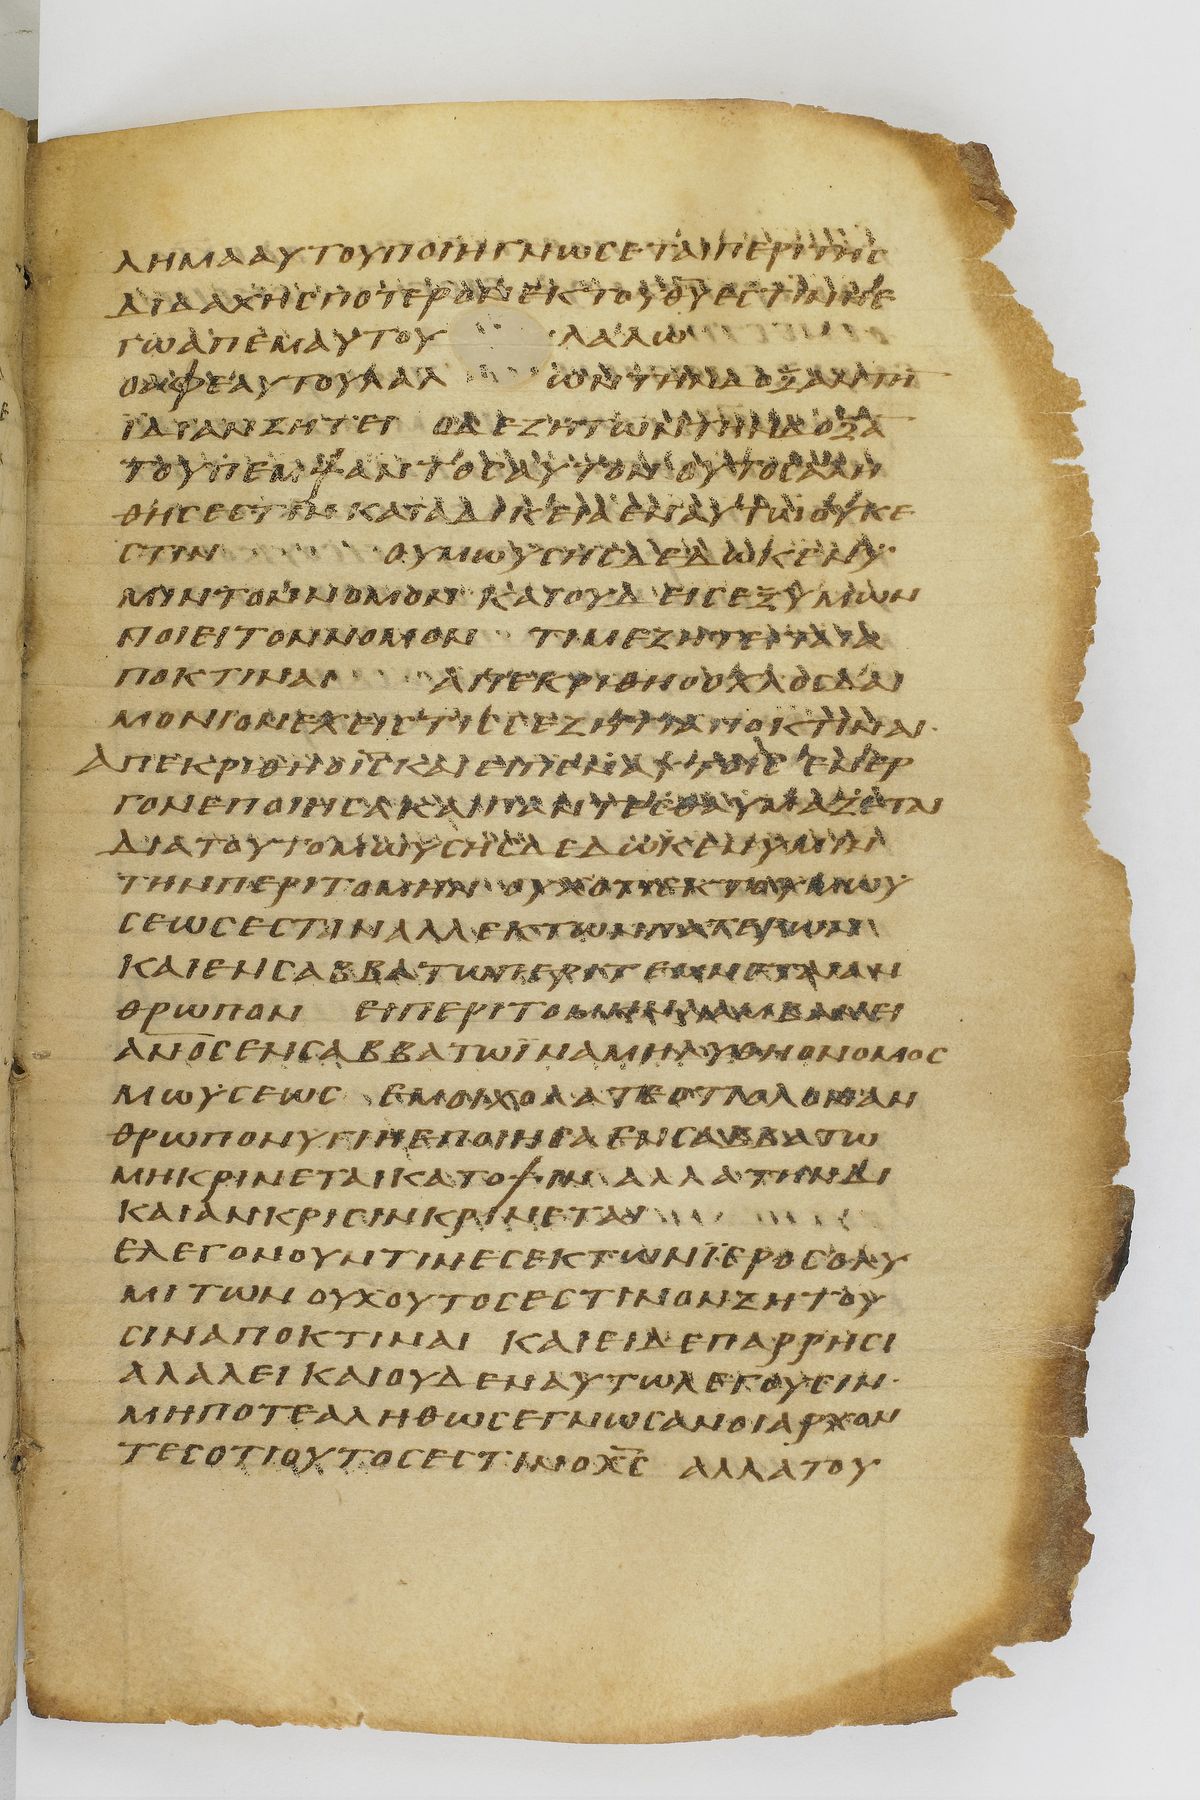 ΛΗΜΑΑΥΤΟΥΠΟΙΗΓΝΩCΕΤΑΙΠΕΡΙΤΗC
ΔΙΔΑΧΗCΠΟΤΕΡΟΝΕΚΤΟΥΘ̅Υ̅ΕCΤΙΝΗΕ
ΓΩΑΠΕΜΑΥΤΟΥ ΛΑΛΩ
ΟΑΦΕΑΥΤΟΥΛΑΛ ΩΝΤΗΝΔΟΞΑΝΤΗ
ΙΔΙΑΝΖΗΤΕΙ ΟΔΕΖΗΤΩΝΤΗΝΔΟΞΑ
ΤΟΥΠΕΜΨΑΝΤΟCΑΥΤΟΝ ΟΥΤΟCΑΛΗ
ΘΗCΕCΤΙΝΚΑΙΑΔΙΚΕΙΑΕΝΑΥΤΩΟΥΚΕ
CΤΙΝ ΟΥΜΩΥCΗCΔΕΔΩΚΕΝΥ
ΜΙΝΤΟΝΝΟΜΟΝ ΚΑΙΟΥΔΕΙCΕΞΥΜΩΝ
ΠΟΙΕΙΤΟΝΝΟΜΟΝ ΤΙΜΕΖΗΤΕΙΤΑΙΑ
ΠΟΚΤΙΝΑΙ ΑΠΕΚΡΙΘΗΟΟΧΛΟCΔΑΙ
ΜΟΝΙΟΝΕΧΕΙCΤΙCCΕΖΗΤΙΑΠΟΚΤΙΝΑΙ
ΑΠΕΚΡΙΘΗΟΙ̅C̅ΚΑΙΕΙΠΕΝΑΥΤΟΙCΕΝΕΡ
ΓΟΝΕΠΟΙΗCΑΚΑΙΠΑΝΤΕCΘΑΥΜΑΖΕΤΑΙ
ΔΙΑΤΟΥΤΟΜΩΥCΗCΔΕΔΩΚΕΝΥΜΙΝ
ΤΗΝΠΕΡΙΤΟΜΗΝ ΟΥΧΟΤΙΕΚΤΟΥΜΩΥ
CΕΩCΕCΤΙΝΑΛΛΕΚΤΩΝΠΑΤΕΡΩΝ
ΚΑΙΕΝCΑΒΒΑΤΩΠΕΡΙΤΕΜΝΕΤΑΙΑΝ
ΘΡΩΠΟΝ ΕΙΠΕΡΙΤΟΜΗΝΛΑΜΒΑΝΕΙ
Α̅Ν̅Ο̅C̅ΕΝCΑΒΒΑΤΩΪΝΑΜΗΛΥΘΗΟΝΟΜΟC
ΜΩΥCΕΩC ΕΜΟΙΧΟΛΑΤΕΟΤΙΟΛΟΝΑΝ
ΘΡΩΠΟΝΥΓΙΗΕΠΟΙΗCΑΕΝCΑΒΒΑΤΩ
ΜΗΚΡΙΝΕΤΑΙΚΑΤΟΨΙΝ ΑΛΛΑΤΗΝΔΙ
ΚΑΙΑΝΚΡΙCΙΝΚΡΙΝΕΤΑΙ
ΕΛΕΓΟΝΟΥΝΤΙΝΕCΕΚΤΩΝΪΕΡΟCΟΛΥ
ΜΙΤΩΝ ΟΥΧΟΥΤΟCΕCΤΙΝΟΝΖΗΤΟΥ
CΙΝΑΠΟΚΤΙΝΑΙ ΚΑΙΕΙΔΕΠΑΡΡΗCΙ
ΑΛΑΛΕΙΚΑΙΟΥΔΕΝΑΥΤΩΛΕΓΟΥCΙΝ
ΜΗΠΟΤΕΑΛΗΘΩCΕΓΝΩCΑΝΟΙΑΡΧΟΝ
ΤΕCΟΤΙΟΥΤΟCΕCΤΙΝΟΧ̅C̅ ΑΛΛΑΤΟΥ